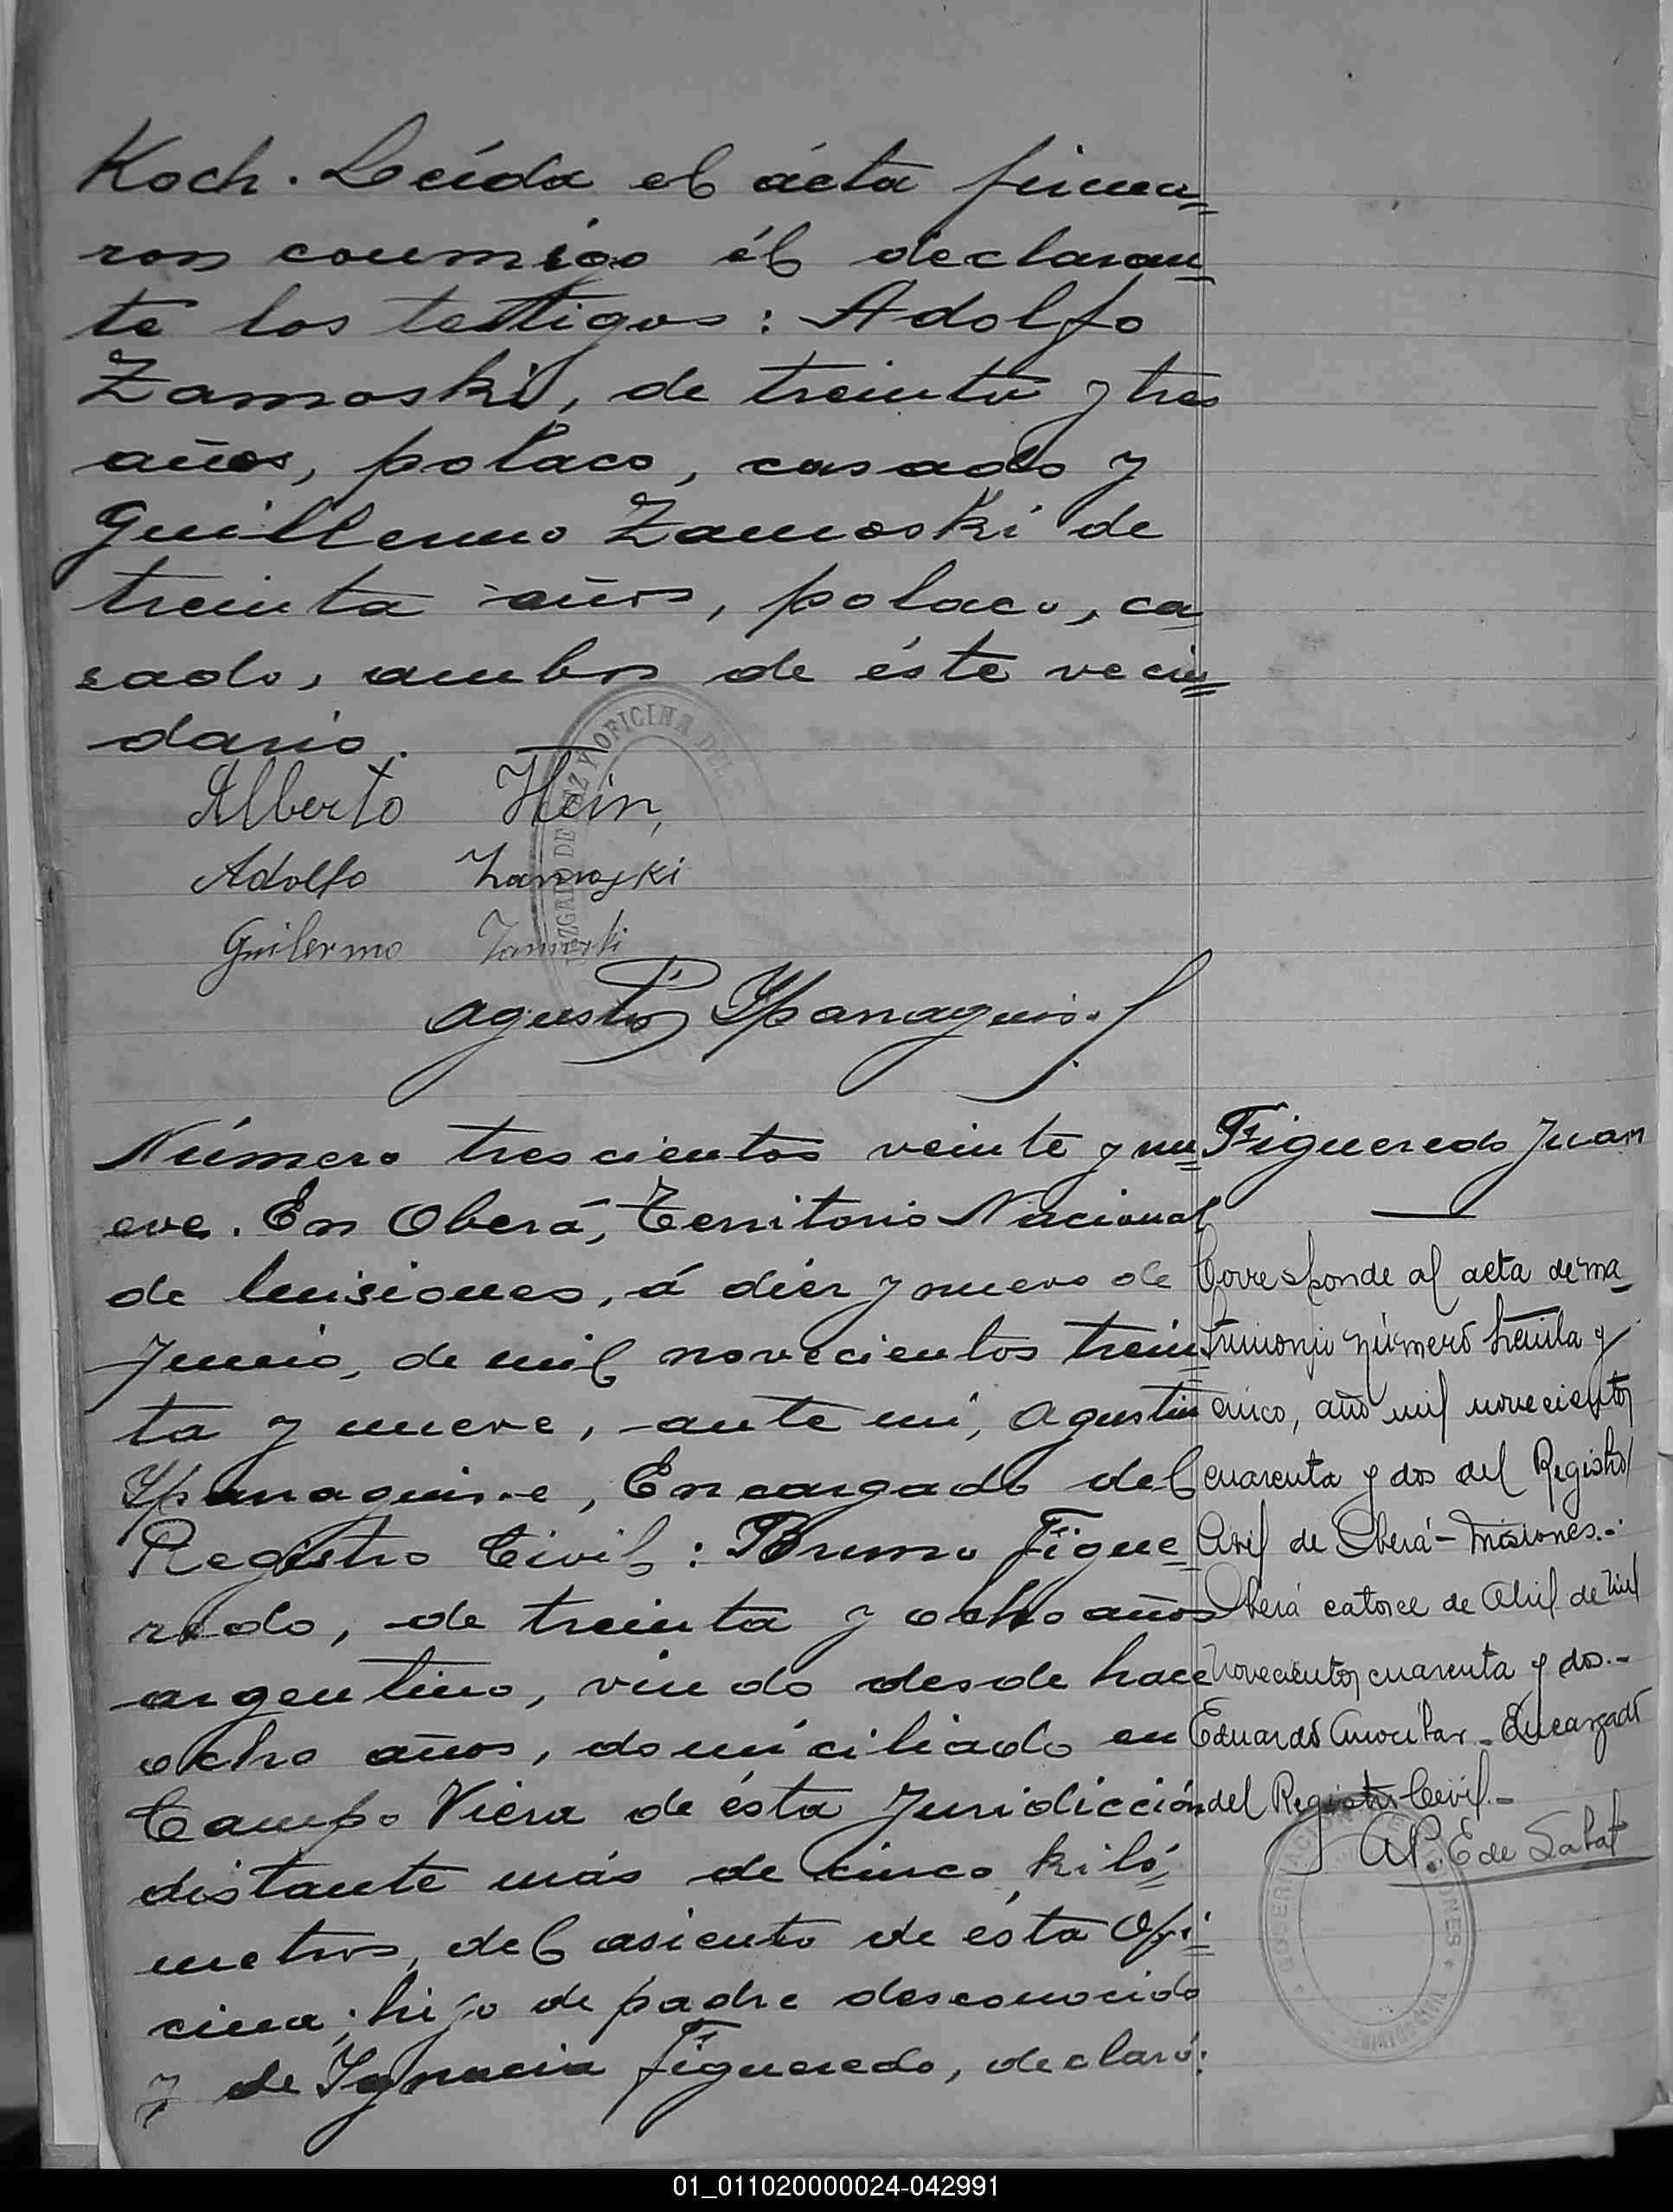 Koch. Leída el ácta firma=
ron conmigo él declaran=
te los testigos: Adolfo
Zamoski, de treinta y tres
años, polaco, casado y
Guillermo Zamoski de
treinta años, polaco, ca
sado, ambos de éste vecin=
dario.
Alberto Hein,
Adolfo Zamoski
Guilermo Zamoski
JUZGADO DE PAZ Y OFICINA DEL
Agustín
Número trescientos veinte y nu=
eve. En Oberá, Territorio Nacional
de Misiones, á diez y nueve de
Junio, de mil novecientos trein=
ta y nueve, ante mí, Agustin
Encargado del
Registro Civil: Bruno Figue=
redo, de treinta y ocho años
argentino, viudo desde hace
ocho años, domiciliado en
Campo Viera de ésta Juridicción
distante más de cinco kiló=
metros, del asiento de ésta Ofi=
cina; hijo de padre desconocido
y de Ygnacia Figueredo, declaró:
Figueredo Juan
Corresponde al acta de ma=
trimonio número treinta y
cinco, año mil novecientos
cuarenta y dos del Registro
Civil de Oberá - Misiones.-
Oberá catorce de Abril de mil
novecientos cuarenta y dos.-
Eduardo - Encargado
del Registro Civil.-
GOBERNACION DE MISIONES
01_011020000024-042991